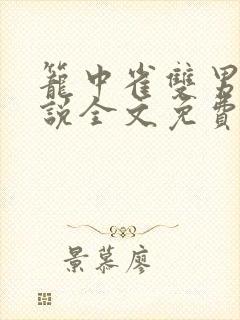 籠中雀雙男
說全文免費
景慕廖